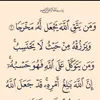 وَمَن يَتَّقِ ٱللَّهَ يَجْعَل لَّهُۥ مَخْرَجًا ٢
وَيَرْزُقْهُ مِنْ حَيْثُ لَا يَحْتَسِبُ
وَمَن يَتَوَكَّلْ عَلَى ٱللَّهِ فَهُوَ حَسْبُهُۥٓ
إِنَّ ٱللَّهَ بَٰلِغُ أَمْرِهِۦ قَدْ جَعَلَ ٱللَّهُ